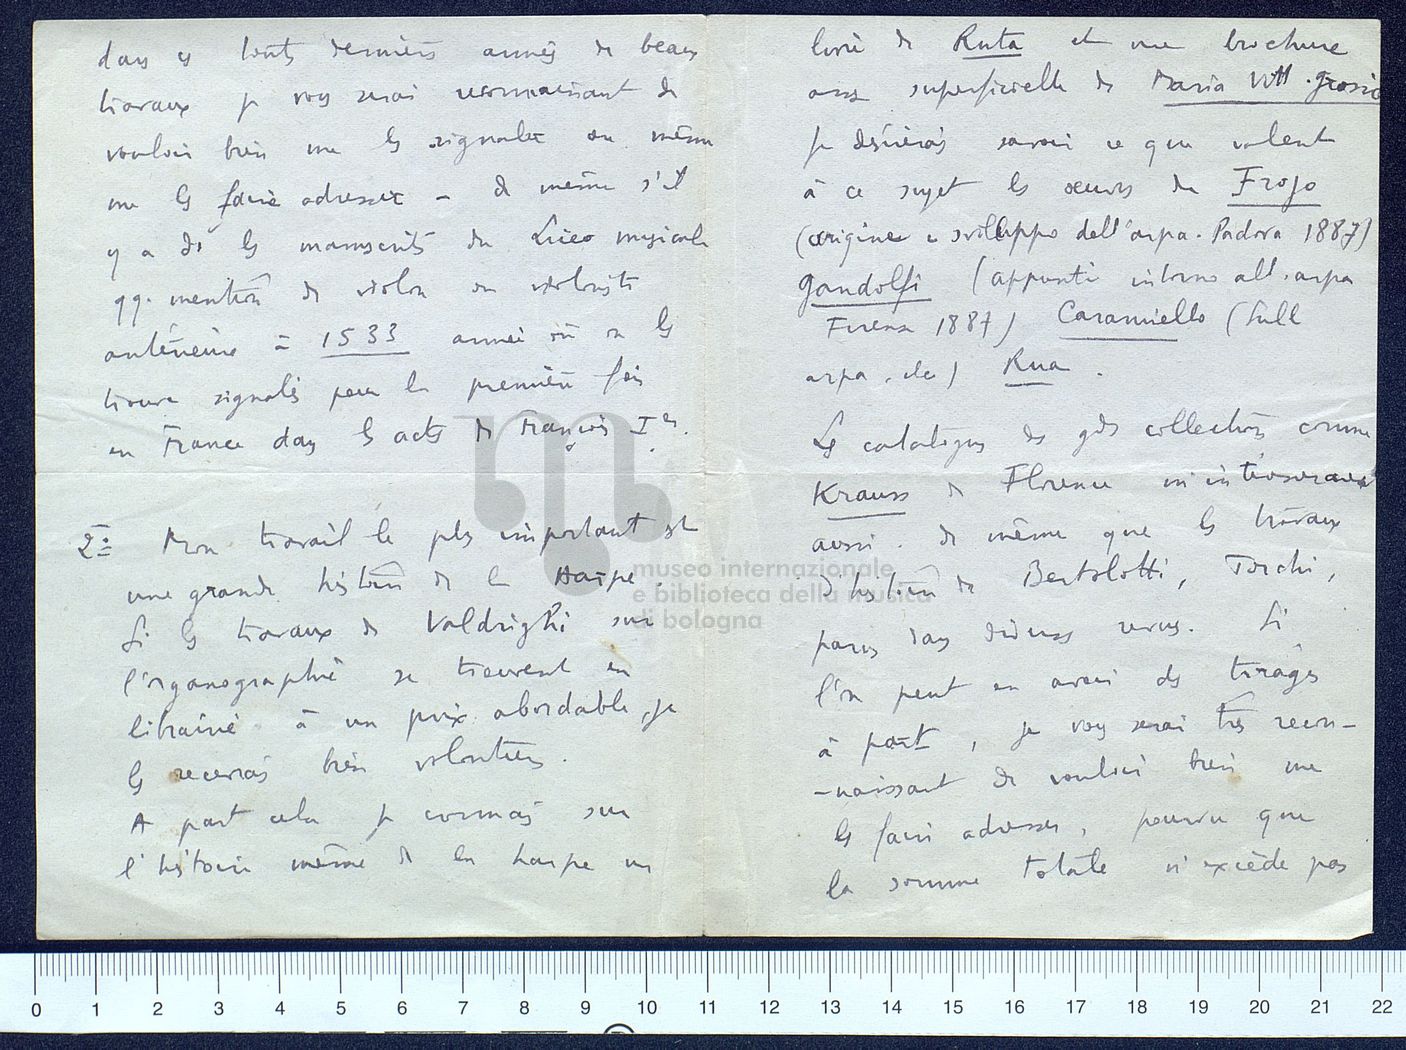 dans ces touts derniers années de beaux
travaux je vous serai reconnaissant de
vouloir bien me les signaler ou même
me les faire adresser – de même s'il
y a ds les manuscrits du Liceo musicale
qq. mention de violon ou violoniste
antérieure à 1533 année où on les
trouve signalés pour la première fois
en France dans les actes de François Ier.
2° Mon travail le plus important est
une grande histoire de la Harpe.
Si les travaux de Valdrighi sur
l'organographie se trouvent en
librairie à un prix abordable, je
les recevrais bien volontiers.
A part cela je connais sur
l'histoire même de la harpe un
livre de Ruta et une brochure
assez superficielle de Maria Vitt. Grossi
Je désirerais savoir ce que valent
à ce sujet les oeuvres de Frojo
(origine e sviluppo dell'arpa. Padova 1887)
Gandolfi (appunti intorno all'arpa
Firenze 1887) Caramiello (sull
arpa, etc) Rua.
Les catalogues des gdes collections comme
Krauss de Florence m'intéresseraient
aussi. de même que les travaux
d'histoire de Bertolotti, Torchi,
parus dans diverses revues. Si
l'on peut en avoir des tirages
à part, je vous serai très recon-
-naissant de vouloir bien me
les faire adresser, pourvu que
la somme totale n'excède pas
museo internazionale
e biblioteca della musica
di bologna
0 1 2 3 4 5 6 7 8 9 10 11 12 13 14 15 16 17 18 19 20 21 22